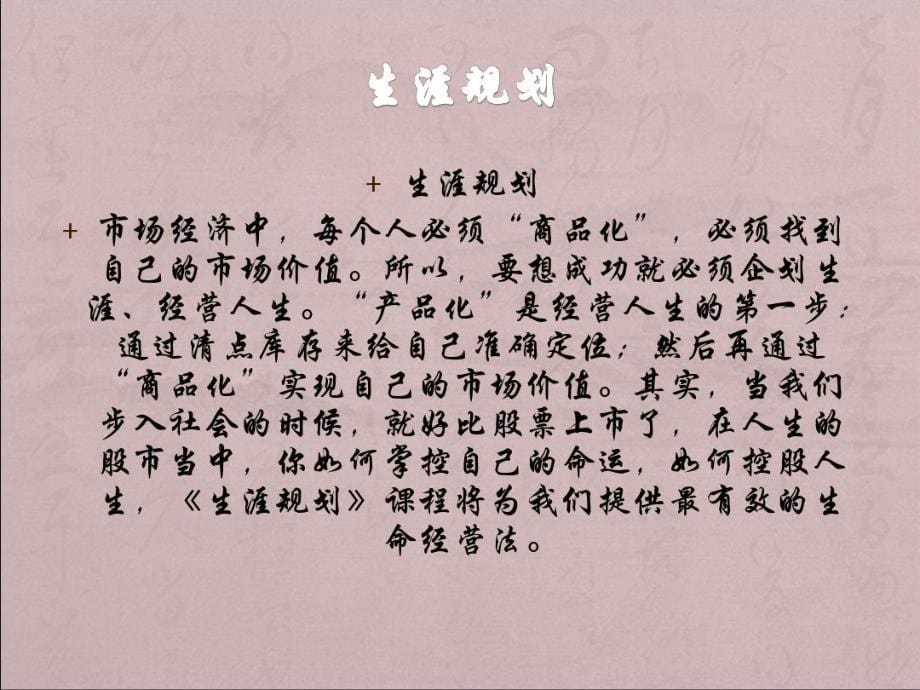 生涯规划
+ 生涯规划
+ 市场经济中，每个人必须“商品化”，必须找到
自己的市场价值。所以，要想成功就必须企划生
涯、经营人生。“产品化”是经营人生的第一步：
通过清点库存来给自己准确定位；然后再通过
“商品化”实现自己的市场价值。其实，当我们
步入社会的时候，就好比股票上市了，在人生的
股市当中，你如何掌控自己的命运，如何控股人
生，《生涯规划》课程将为我们提供最有效的生
命经营法。